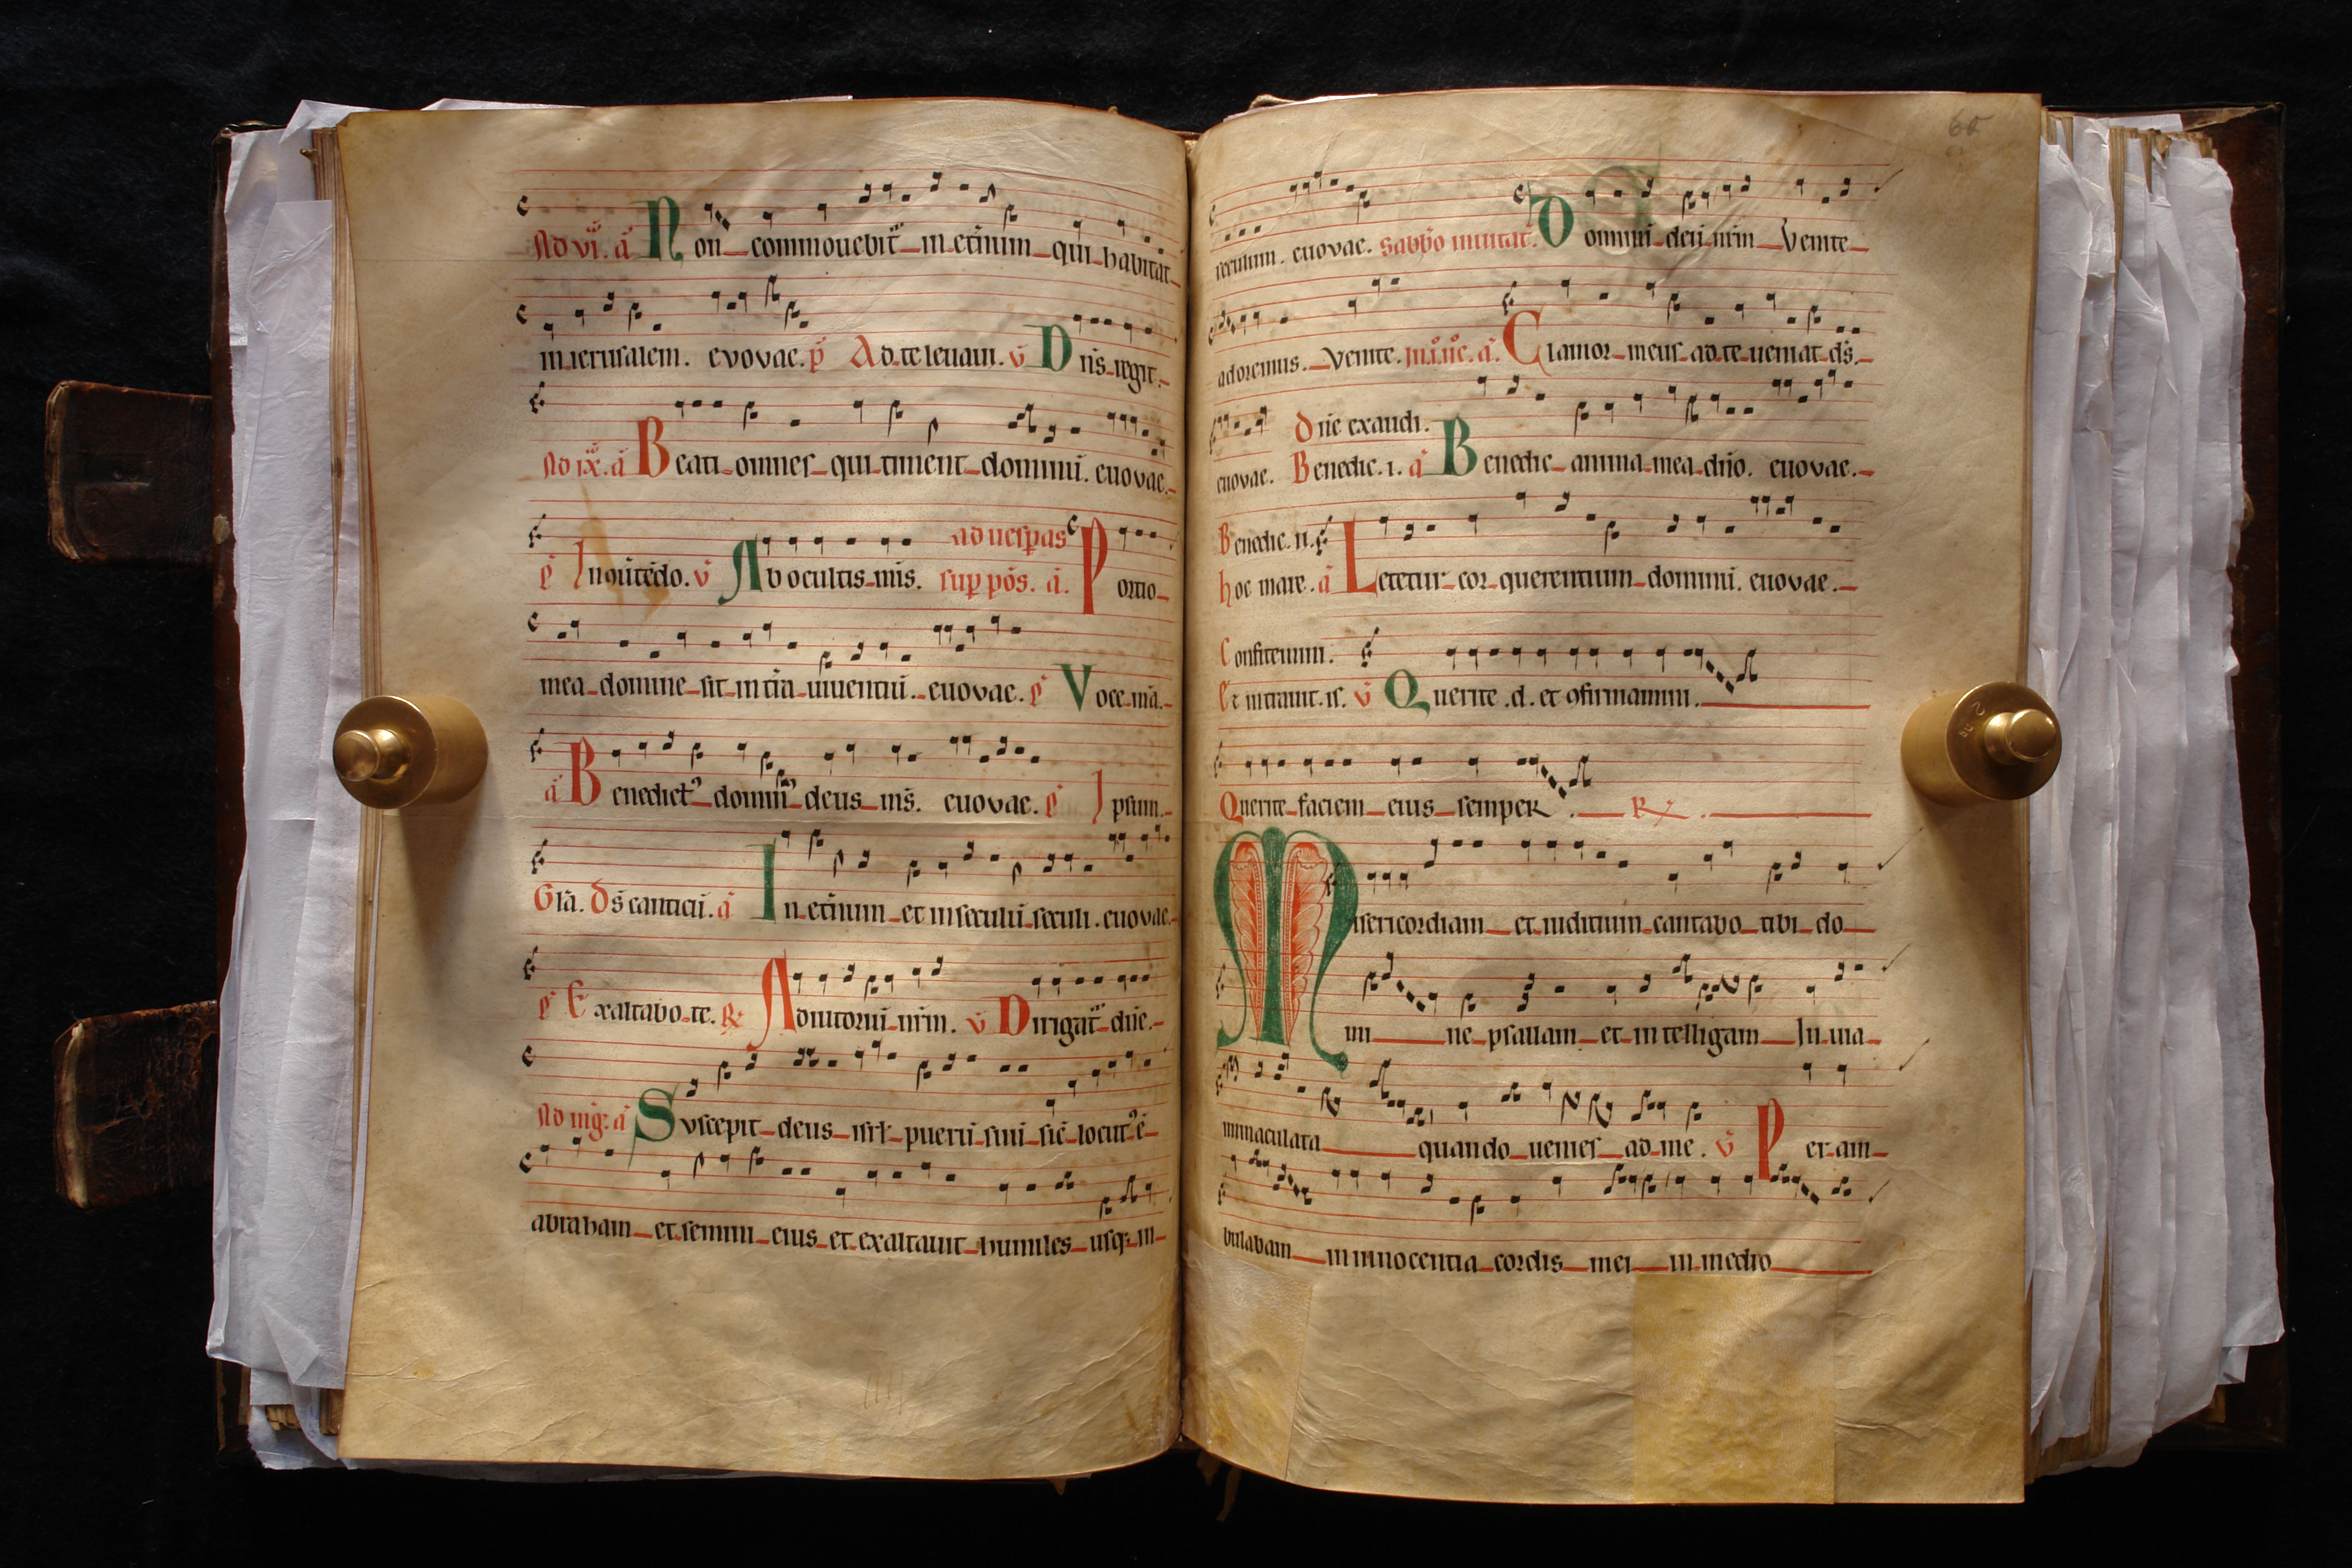 Ad vi. a Non commouebit in eternum qui habitat
in ierusalem. evovae. p Ad te leuaui. v Dns regit.
Ad ix. a Beati omnes qui timent dominu. euovae.
ad uespas
p In quitedo. v Ab ocultis mis. sup pos. a. Portio
mea domine sit in tra uiuentiu. euovae. p Voce mea.
a Benedict' domin' deus ms. euovae. p Ipsum.
Gla. Ds canticu. a In eternum et in seculu seculi. euovae.
p Exaltabo te. R Adiutoriu nrm. v Dirigat' dne.
Ad mg. a Suscepit deus isrl pueru suu sic locut' e
abraham et semini eius et exaltauit humiles usq; in
60
seculum. euovae. Sabbo inuitat. Dominu deu nrm Venite
adoremus. Venite. in. i. noc. a. Clamor meus ad te ueniat ds.
Dne exaudi.
euovae. Benedic. i. a Benedic anima mea dno. euovae.
Benedic. ii.
hoc mare. a Letetur cor querentium dominu. euovae.
Confitemini.
Et intrauit. is. v Querite .d. et 9firmamini.
Querite faciem eius semper. R
Misericordiam et iuditium cantabo tibi do
mi ne psallam et in telligam In uia
inmaculata quando uenies ad me. v Per am
bulabam in innocentia cordis mei in medio